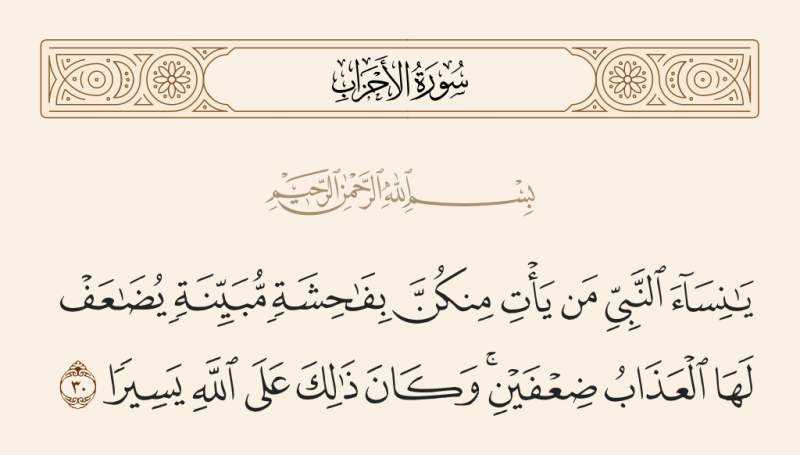 سُورَةُ الأَحْزَابِ
بِسْمِ اللَّهِ الرَّحْمَٰنِ الرَّحِيمِ
يَـٰنِسَآءَ ٱلنَّبِىِّ مَن يَأْتِ مِنكُنَّ بِفَـٰحِشَةٍۢ مُّبَيِّنَةٍۢ يُضَـٰعَفْ
لَهَا ٱلْعَذَابُ ضِعْفَيْنِ ۚ وَكَانَ ذَٰلِكَ عَلَى ٱللَّهِ يَسِيرًۭا ٣٠